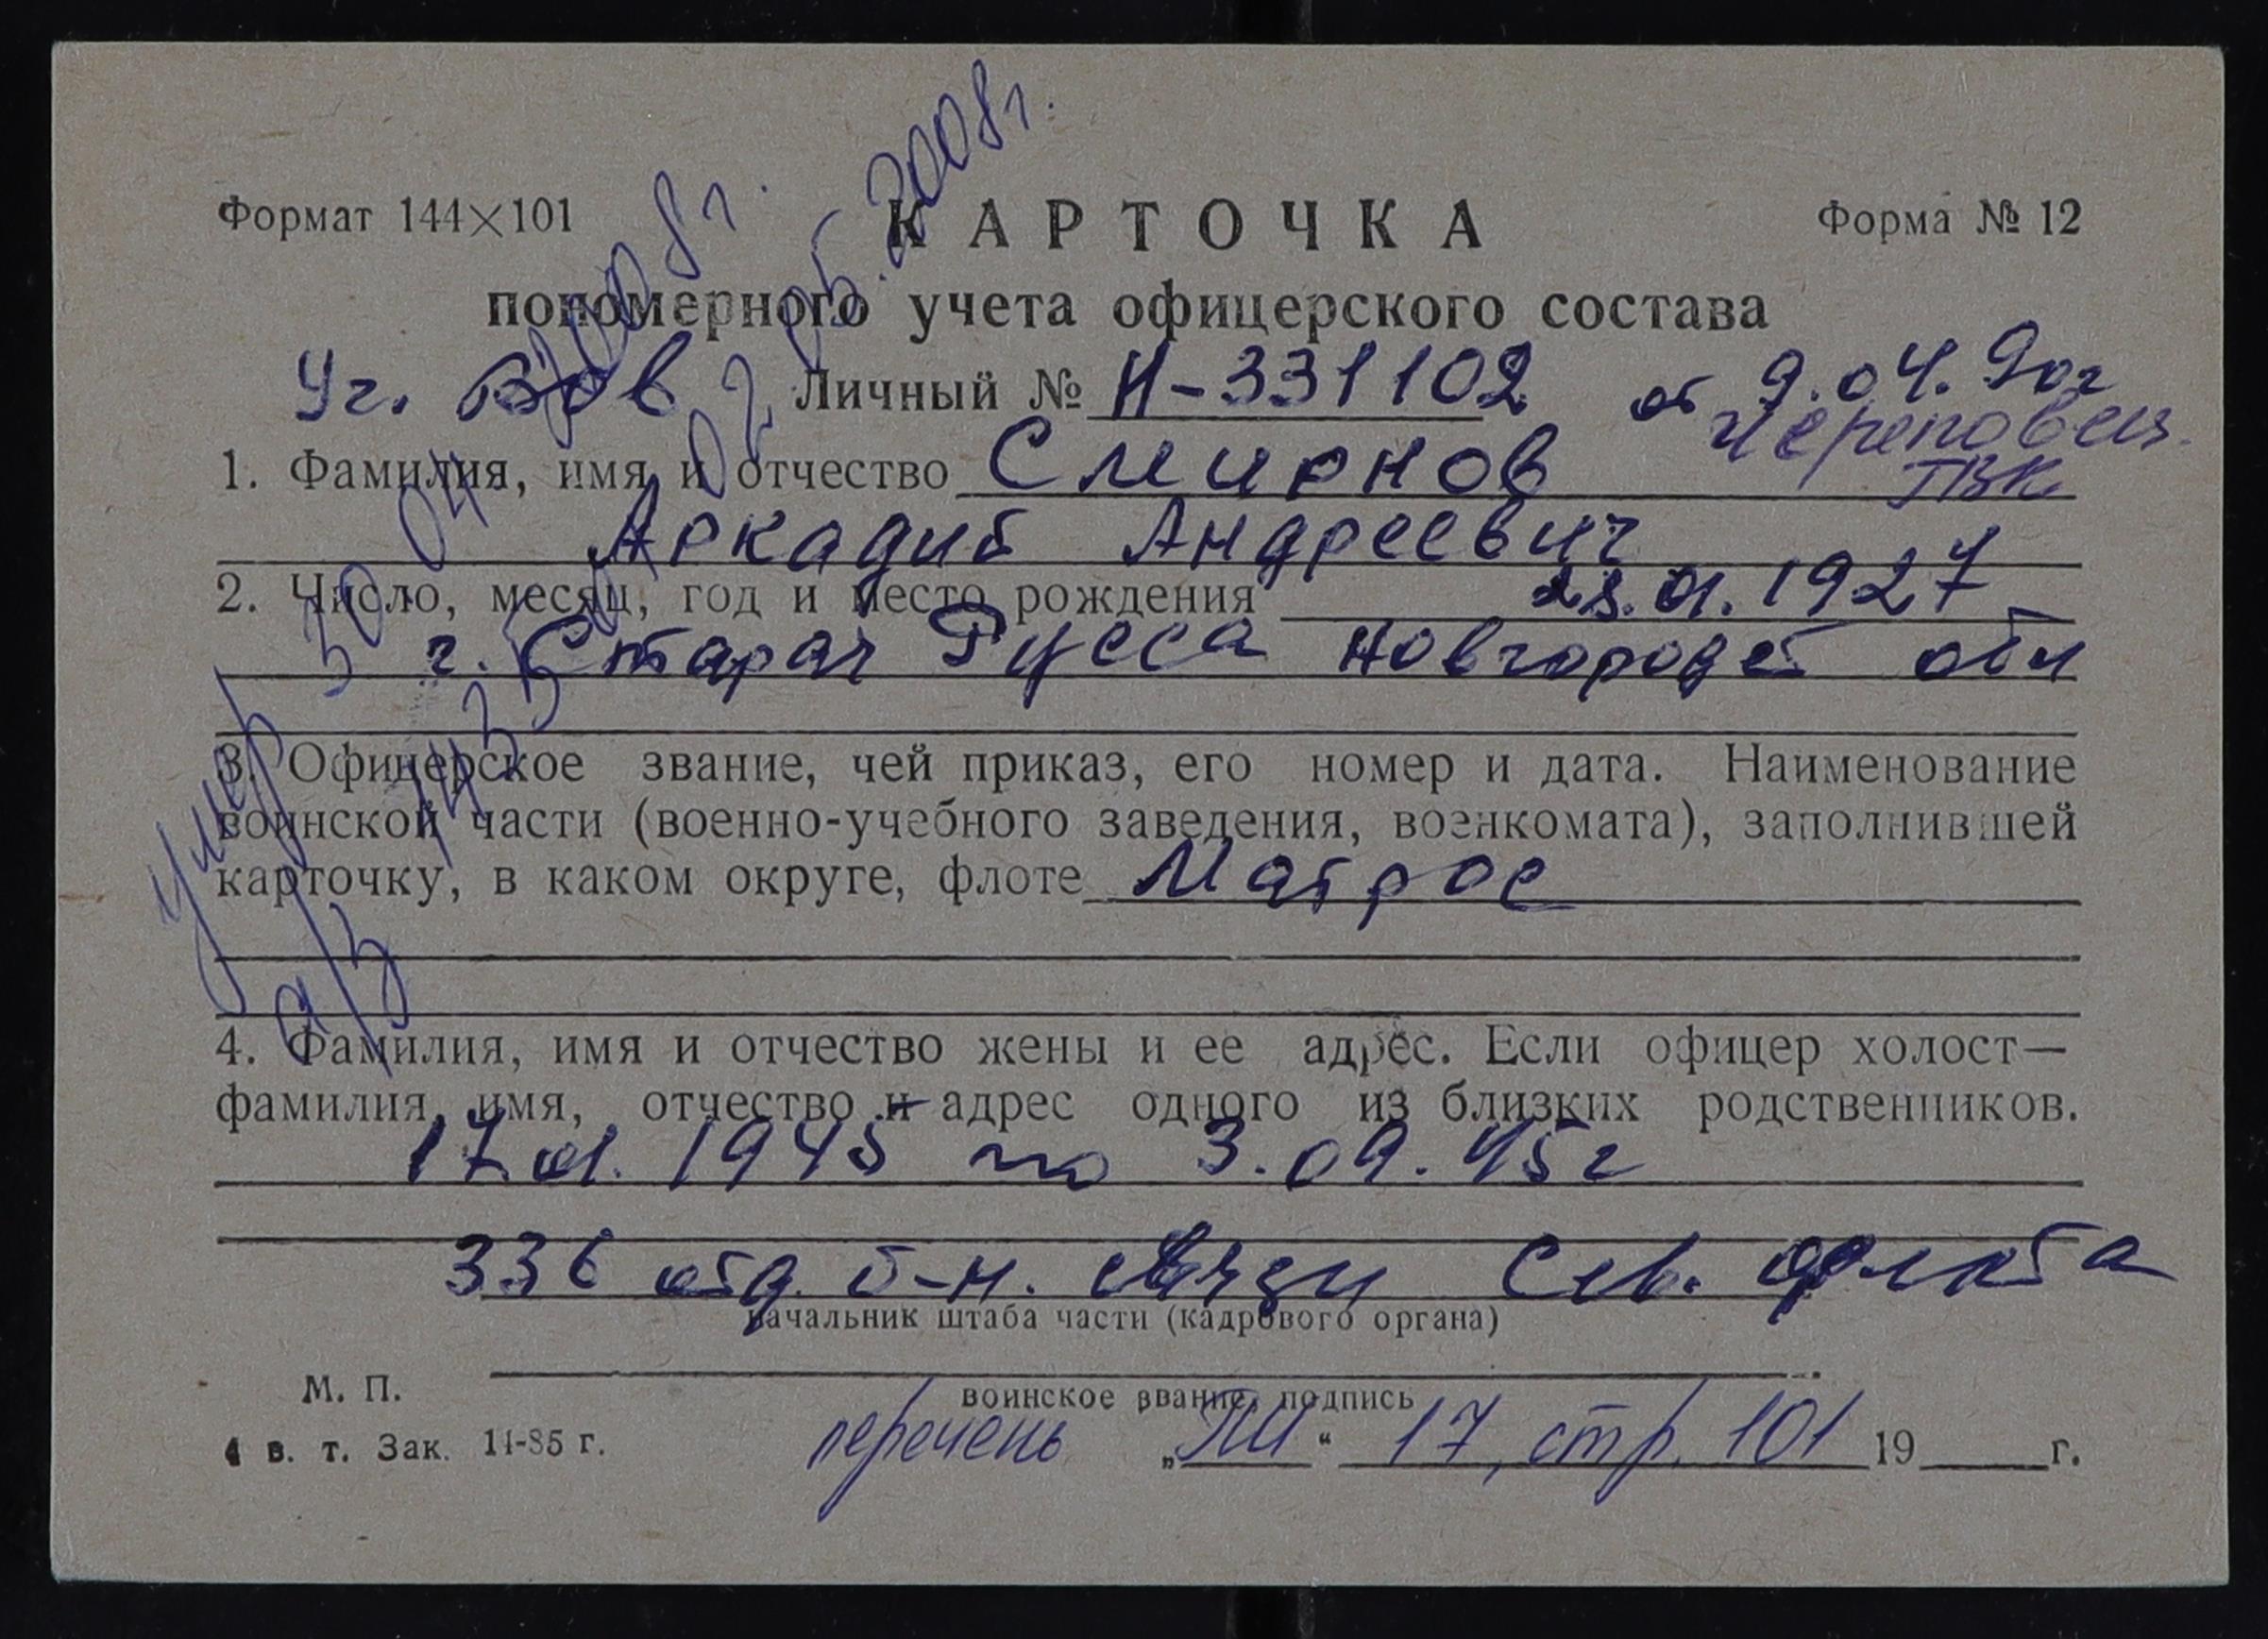 Формат 144×101
КАРТОЧКА
Форма № 12
пономерного учета офицерского состава
Уч. ВОв Личный № И-331102 от 9.04.90г
Череповец.
ГВК
1. Фамилия, имя и отчество Смирнов
Аркадий Андреевич
2. Число, месяц, год и место рождения 28.01.1927
г. Старая Русса Новгородс обл
3. Офицерское звание, чей приказ, его номер и дата. Наименование
воинской части (военно-учебного заведения, военкомата), заполнившей
карточку, в каком округе, флоте Матрос
4. Фамилия, имя и отчество жены и ее адрес. Если офицер холост—
фамилия, имя, отчество и адрес одного из близких родственников.
17.01.1945 по 3.09.45г
336 отд. б-н. связи Сев. флота
начальник штаба части (кадрового органа)
М. П.
воинское звание, подпись
перечень „ГШ“ 17, стр. 101 19 г.
4 в. т. Зак. 14-85 г.
умер 30 04 2008г.
а/з 02.05.2008г.